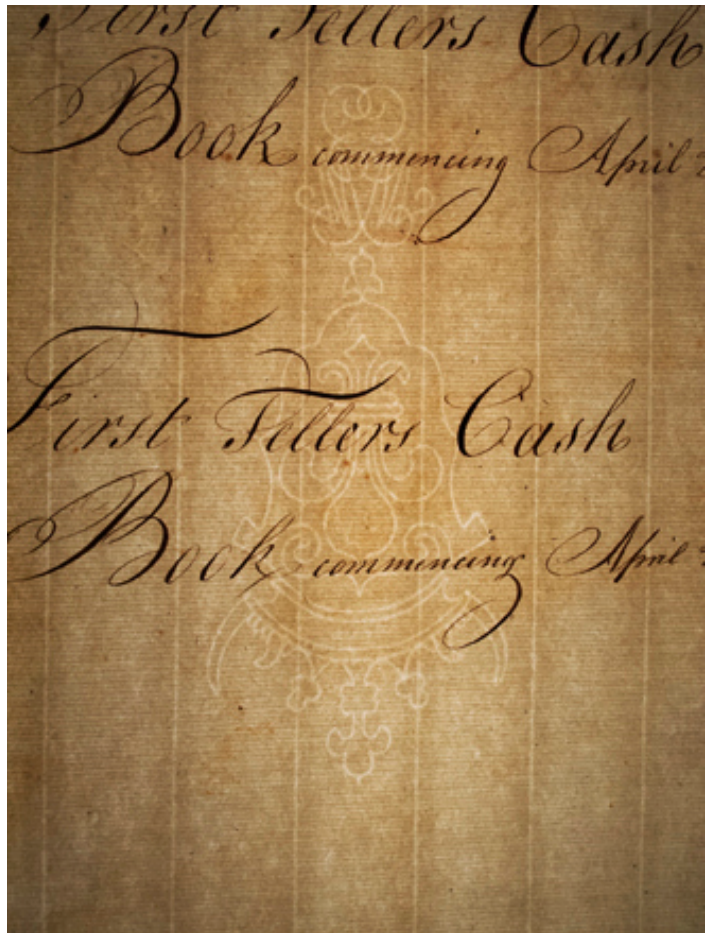 First Tellers Cash
Book commencing April
First Tellers Cash
Book commencing April